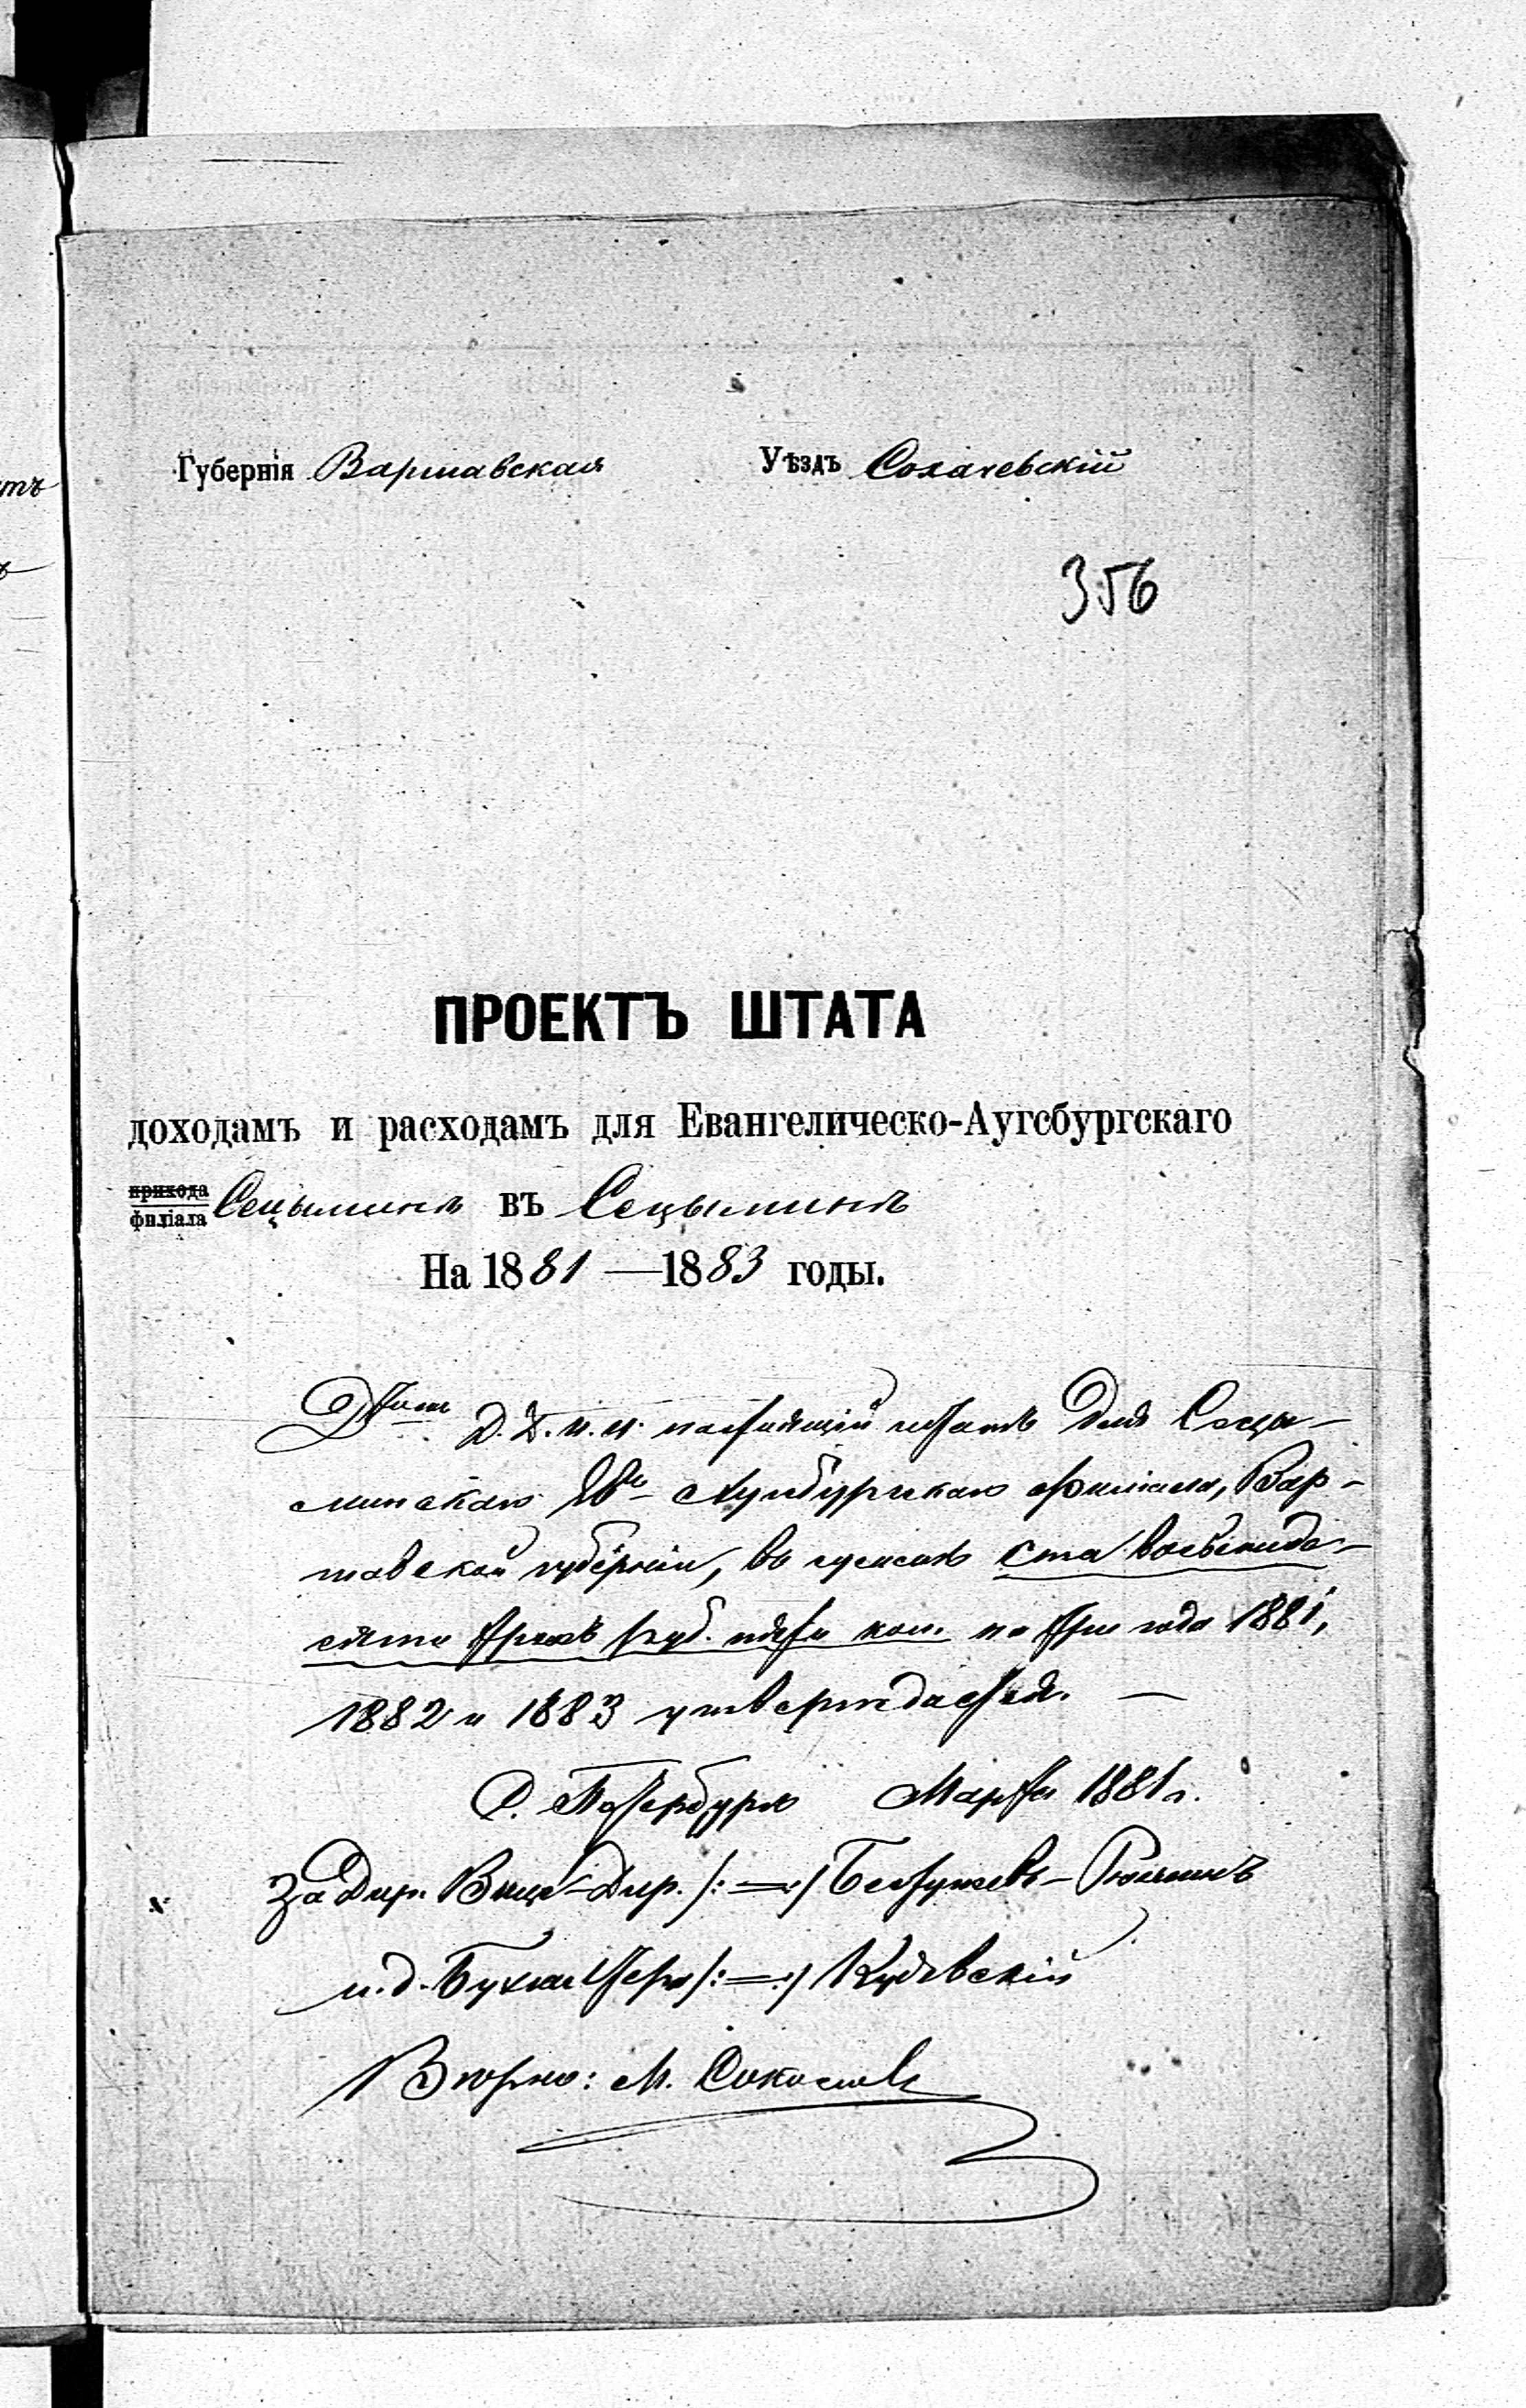 Губернія Варшавская Уѣздъ Сохачевскій
356
ПРОЕКТЪ ШТАТА
доходамъ и расходамъ для Евангелическо-Аугсбургскаго
прихода
филіала Сецыминъ въ Сецыминѣ
На 1881 — 1883 годы.
Д. Д. И. И. настоящій штатъ для Сецы-
минскаго Ев. Аугсбургскаго филіала, Вар-
шавской губерніи, въ суммѣ ста восьмиде-
сяти трехъ руб. пяти коп. на три года 1881,
1882 и 1883 утверждается. —
С. Петербургъ Марта 1881 г.
За Дир. Вице-Дир. /:—:/ Бестужевъ-Рюминъ
и. д. Бухгалтера /:—:/
Вѣрно: М. Соколовъ